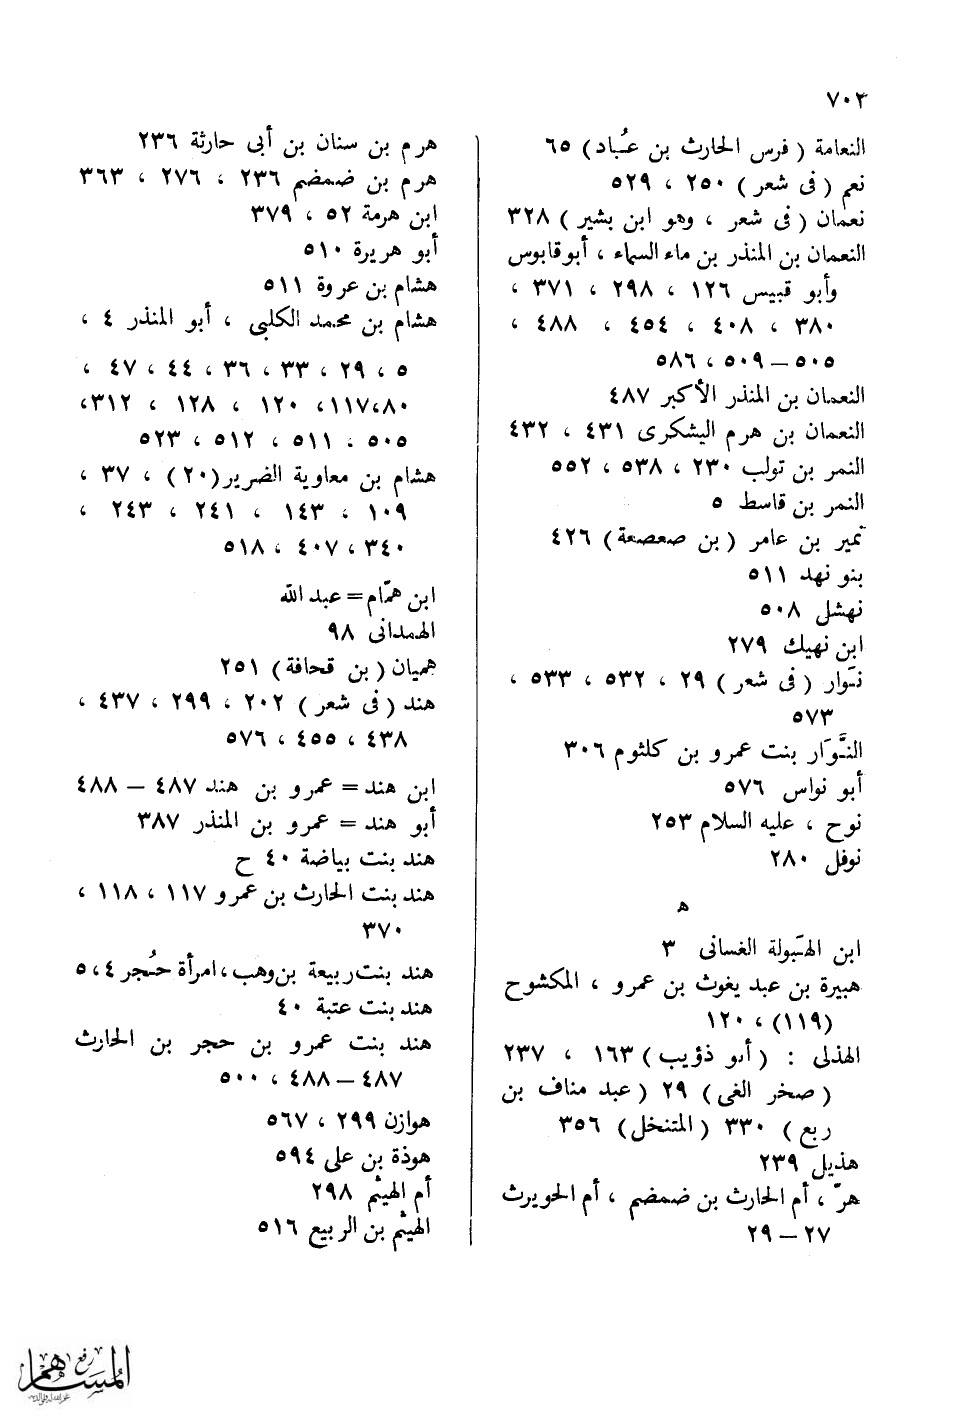 ٧٠٣
النعامة ( فرس الحارث بن عُباد ) ٦٥
نعم ( فى شعر ) ٢٥٠ ، ٥٢٩
نعمان ( فى شعر ، وهو ابن بشير ) ٣٢٨
النعمان بن المنذر بن ماء السماء ، أبو قابوس
وأبو قبيس ١٢٦ ، ٢٩٨ ، ٣٧١ ،
٣٨٠ ، ٤٠٨ ، ٤٥٤ ، ٤٨٨ ،
٥٠٥ – ٥٠٩ ، ٥٨٦
النعمان بن المنذر الأكبر ٤٨٧
النعمان بن هرم اليشكرى ٤٣١ ، ٤٣٢
النمر بن تولب ٢٣٠ ، ٥٣٨ ، ٥٥٢
النمر بن قاسط ٥
نمير بن عامر ( بن صعصعة ) ٤٢٦
بنو نهد ٥١١
نهشل ٥٠٨
ابن نهيك ٢٧٩
نَوار ( فى شعر ) ٢٩ ، ٥٣٢ ، ٥٣٣ ،
٥٧٣
النَّوَار بنت عمرو بن كلثوم ٣٠٦
أبو نواس ٥٧٦
نوح ، عليه السلام ٢٥٣
نوفل ٢٨٠
ه
ابن الهَبولة الغسانى ٣
هبيرة بن عبد يغوث بن عمرو ، المكشوح
(١١٩) ، ١٢٠
الهذلى : ( أبو ذؤيب ) ١٦٣ ، ٢٣٧
( صخر الغى ) ٢٩ ( عبد مناف بن
ربع ) ٣٣٠ ( المتنخل ) ٣٥٦
هذيل ٢٣٩
هرّ ، أم الحارث بن ضمضم ، أم الحويرث
٢٧ – ٢٩
هرم بن سنان بن أبى حارثة ٢٣٦
هرم بن ضمضم ٢٣٦ ، ٢٧٦ ، ٣٦٣
ابن هرمة ٥٢ ، ٣٧٩
أبو هريرة ٥١٠
هشام بن عروة ٥١١
هشام بن محمد الكلبي ، أبو المنذر ٤ ،
٥ ، ٢٩ ، ٣٣ ، ٣٦ ، ٤٤ ، ٤٧ ،
٨٠ ،١١٧ ، ١٢٠ ، ١٢٨ ، ٣١٢،
٥٠٥ ، ٥١١ ، ٥١٢ ، ٥٢٣
هشام بن معاوية الضرير (٢٠) ، ٣٧ ،
١٠٩ ، ١٤٣ ، ٢٤١ ، ٢٤٣ ،
٣٤٠ ، ٤٠٧ ، ٥١٨
ابن همّام = عبد الله
الهمدانى ٩٨
هميان ( بن قحافة ) ٢٥١
هند ( فى شعر ) ٢٠٢ ، ٢٩٩ ، ٤٣٧ ،
٤٣٨ ، ٤٥٥ ، ٥٧٦
ابن هند = عمرو بن هند ٤٨٧ – ٤٨٨
أبو هند = عمرو بن المنذر ٣٨٧
هند بنت بياضة ٤٠ ح
هند بنت الحارث بن عمرو ١١٧ ، ١١٨ ،
٣٧٠
هند بنت ربيعة بن وهب ، امرأة حُجر ٤ ،٥
هند بنت عتبة ٤٠
هند بنت عمرو بن حجر بن الحارث
٤٨٧ – ٤٨٨ ، ٥٠٠
هوازن ٢٩٩ ، ٥٦٧
هوذة بن على ٥٩٤
أم الهيثم ٢٩٨
الهيثم بن الربيع ٥١٦